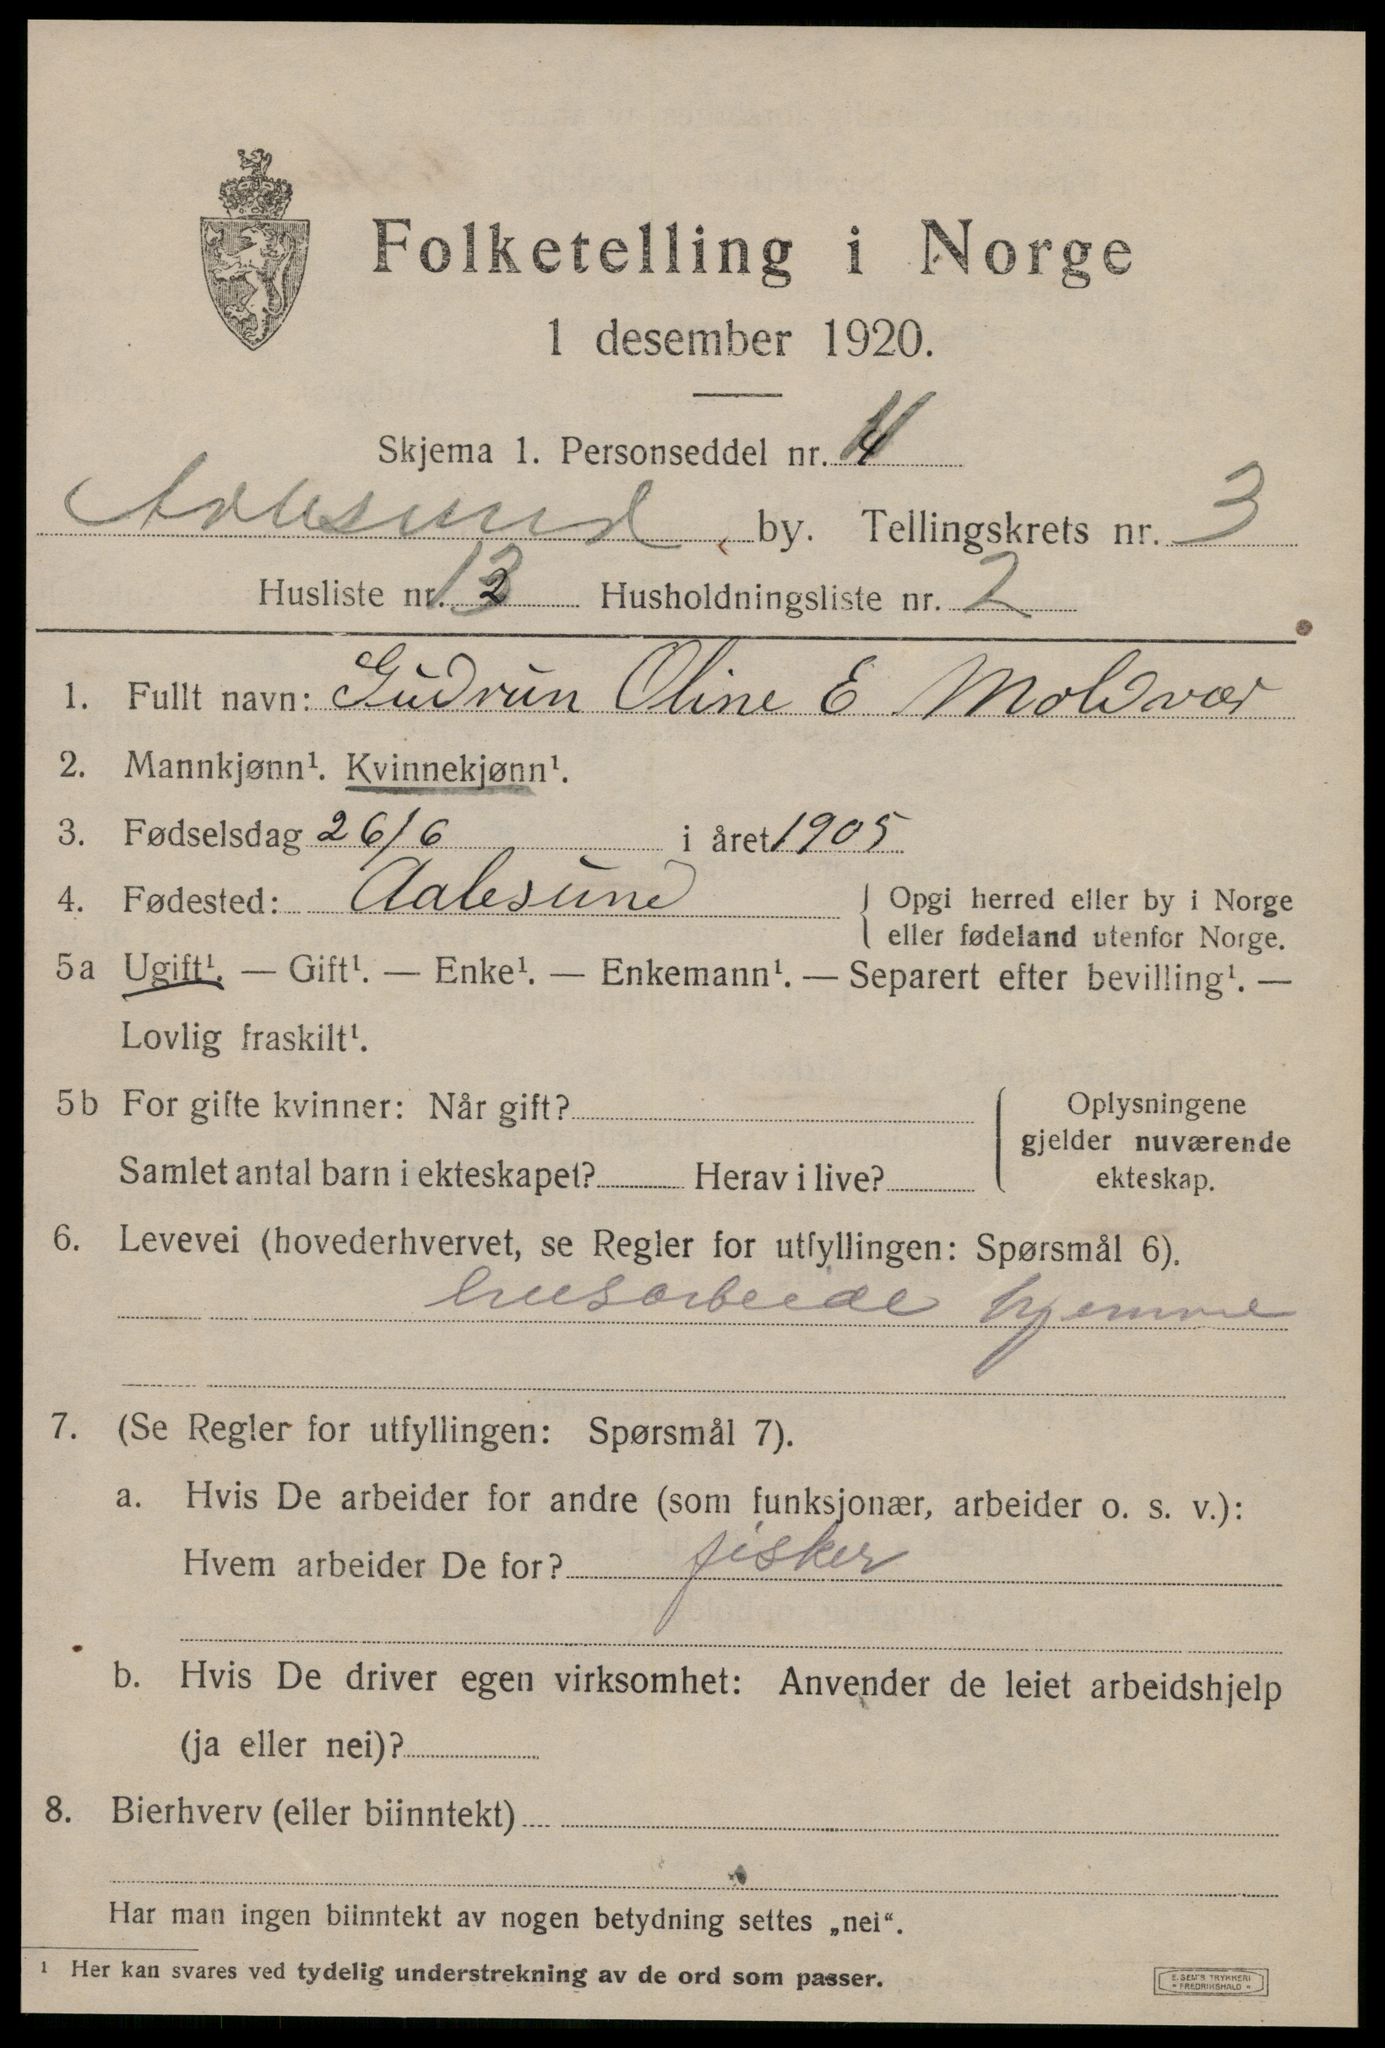 Folketelling i Norge
1 desember 1920.
Skjema 1. Personseddel nr. 4
Aalesund by. Tellingskrets nr. 3
Husliste nr. Husholdningsliste nr. 2
1. Fullt navn: Gudrun Oline E Moldvær
2. Mannkjønn¹. Kvinnekjønn¹.
3. Fødselsdag 26/6 i året 1905
4. Fødested: Aalesund { Opgi herred eller by i Norge
eller fødeland utenfor Norge.
5a Ugift¹. — Gift¹. — Enke¹. — Enkemann¹. — Separert efter bevilling¹. —
Lovlig fraskilt¹.
5b For gifte kvinner: Når gift? Oplysningene
gjelder nuværende
Samlet antal barn i ekteskapet? Herav i live? ekteskap.
6. Levevei (hovederhvervet, se Regler for utfyllingen: Spørsmål 6).
husarbeide hjemme
7. (Se Regler for utfyllingen: Spørsmål 7).
a. Hvis De arbeider for andre (som funksjonær, arbeider o. s. v.):
Hvem arbeider De for? fisker
b. Hvis De driver egen virksomhet: Anvender de leiet arbeidshjelp
(ja eller nei)?
8. Bierhverv (eller biinntekt)
Har man ingen biinntekt av nogen betydning settes „nei“.
¹ Her kan svares ved tydelig understrekning av de ord som passer.
E. SEM'S TRYKKERI
FREDRIKSHALD